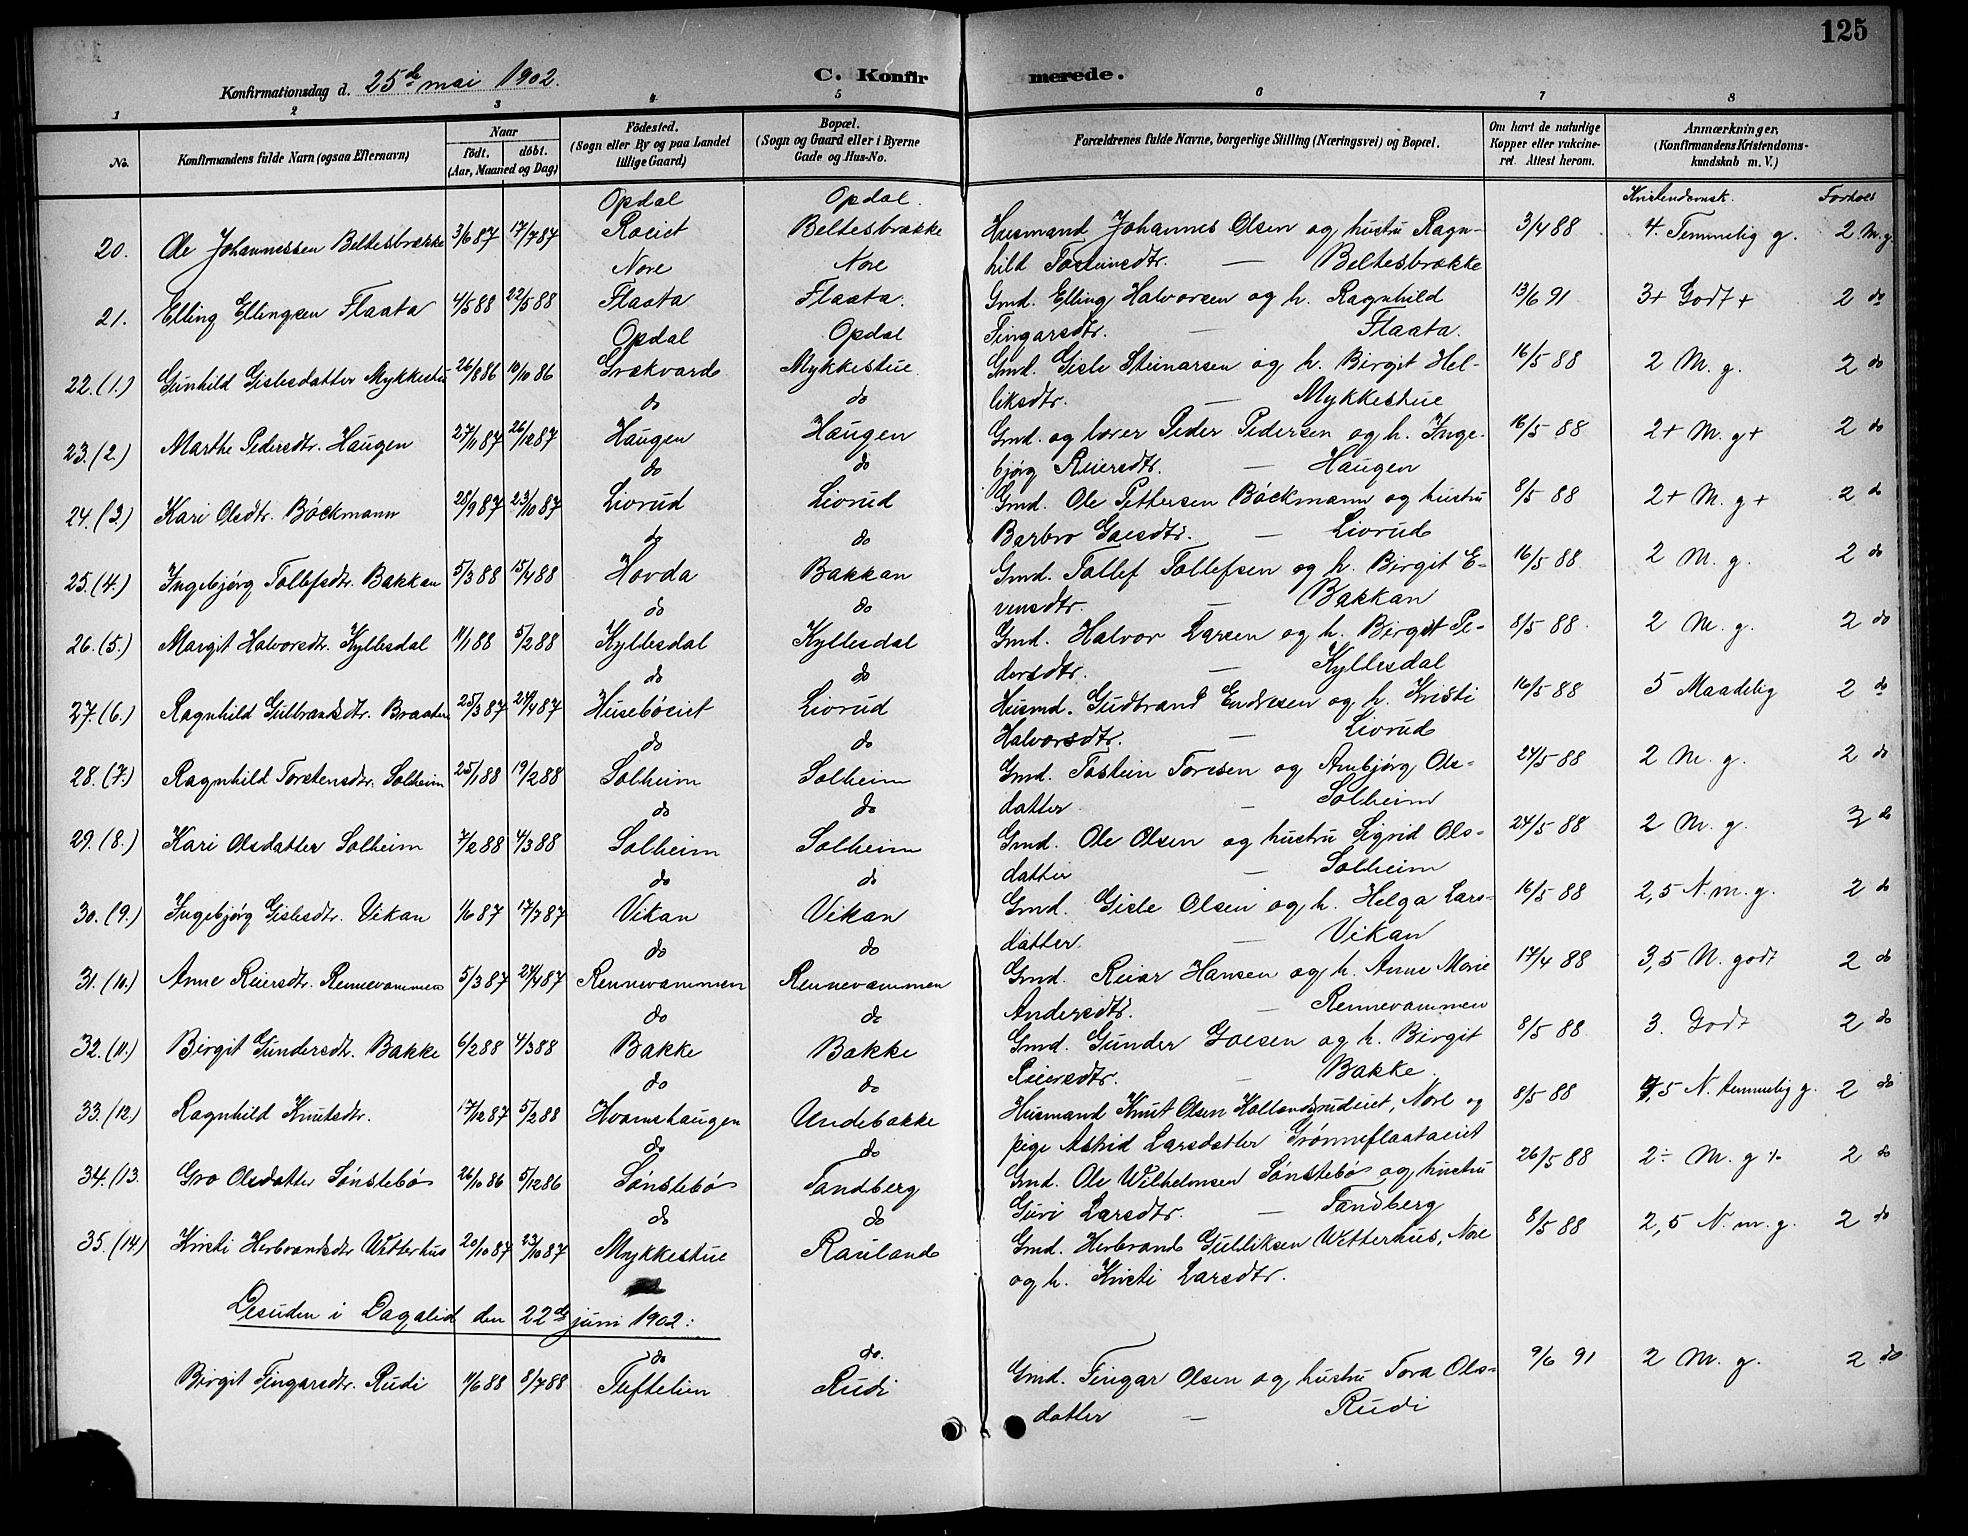 125
Konfirmationsdag d. 25de mai 1902. C. Konfirmerede.
1 2 3 4 5 6 7 8
No. Konfirmandens fulde Navn (ogsaa Efternavn) Naar födt. döbt. (Aar, Maaned og Dag) Födested. (Sogn eller By og paa Landet tillige Gaard) Bopæl. (Sogn og Gaard eller i Byerne Gade og Hus-No. Forældrenes fulde Navne, borgerlige Stilling (Næringsvei) og Bopæl. Om havt de naturlige Kopper eller vakcineret. Attest herom. Anmærkninger, (Konfirmandens Kristendomskundskab m. V.)
Opdal Opdal. Kristendomsk. Forhold
20. Ole Johannessen Beltesbrække 3/6 87 17/7 87 Roeiet Beltesbrække Husmand Johannes Olsen og hustru Ragn- 3/4 88 4. Temmelig g. 2. M. g.
Nore Nore hild Tosteinsdtr. — Beltesbrække
21. Elling Ellingsen Flaata 4/5 88 22/5 88 Flaata Flaata. Gmd. Elling Halvorsen og h. Ragnhild 13/6 91 3+ Godt + 2 do
Opdal Opdal Fingarsdtr. — Flaata.
22. (1.) Gunhild Gislesdatter Mykkestu 26/8 86 10/10 86 Grækvard Mykkestue. Gmd. Gisle Steinarsen og h. Birgit Hel- 16/5 88 2 M. g. 2 do
do do liksdtr. — Mykkestue
23. (2.) Marthe Pedersdtr. Haugen 27/11 87 26/12 87 Haugen Haugen Gmd. og lærer Peder Pedersen og h. Inge- 16/5 88 2+ M. g+ 2 do
do do bjørg Reiersdtr. — Haugen
24. (3.) Kari Olsdtr. Böckmann 28/9 87 23/10 87 Livrud Livrud Gmd. Ole Pettersen Böckmann og hustru 8/5 88 2+ M. g+ 2 do
do do Barbro Goesdtr. — Livrud
25. (4.) Ingebjørg Tollefsdtr. Bakkan 5/3 88 15/4 88 Hovda Bakkan Gmd. Tollef Tollefsen og h. Birgit E- 16/5 88 2 M. g. 2 do
do do vensdtr. — Bakkan
26. (5.) Margit Halvorsdtr. Kyllesdal 11/1 88 5/2 88 Kyllesdal Kyllesdal Gmd. Halvor Larsen og h. Birgit Pe- 8/5 88. 2 M. g. 2 do
do do dersdtr. — Kyllesdal
27. (6.) Ragnhild Gulbrandsdtr. Braaten 25/3 87 24/4 87 Husebøeiet Livrud Husmd. Gudbrand Endresen og h. Kristi 16/5 88 5 Maadelig 2 do
do do Halvorsdtr. — Livrud
28. (7.) Ragnhild Torstensdtr. Solheim 25/1 88 19/2 88 Solheim Solheim Gmd. Tostein Toresen og Anebjørg Ols- 24/5 88 2 M. g. 2 do
do do datter — Solheim
29. (8.) Kari Olsdatter Solheim 7/2 88 4/3 88 Solheim Solheim Gmd. Ole Olsen og hustru Sigrid Ols- 24/5 88 2 M. g. 3 do
do do datter — Solheim
30. (9.) Ingebjørg Gislesdtr. Vikan 1/6 87 17/7 87 Vikan Vikan Gmd. Gisle Olsen og h. Helga Lars- 16/5 88 2,5 N. m. g. 2 do
do do datter. — Vikan
31. (10.) Anne Reiersdtr. Rennevammen 5/3 87 24/4 87 Rennevammen Rennevammen Gmd. Reiar Hansen og h. Anne Marie 17/4 88 3,5 N. godt 2 do
do do Andersdtr. — Rennevammen
32. (11.) Birgit Gundersdtr. Bakke 6/2 88 4/3 88 Bakke Bakke Gmd. Gunder Goesen og h. Birgit 8/5 88. 3. Godt 2 do
do do Reiersdtr. — Bakke.
33. (12.) Ragnhild Knutsdtr. 17/12 87 5/2 88 Hvamshaugen Undebakke Husmand Knut Olsen Hallandsrudeiet, Nore og 8/5 88 4,5 N. temmelig g. 2 do
do do pige Astrid Larsdatter Grønneflaataeiet
34. (13. Gro Olsdatter Sønstebø 26/10 86 5/12 86 Sønstebø Tandberg Gmd. Ole Wilhelmsen Sønstebø og hustru 26/5 88 2÷ M. g ÷ 2 do
do do Guri Larsdtr. — Tandberg
35. (14) Kristi Herbrandsdtr Wetterhus 20/10 87 23/10 87 Mykkestue Rauland Gmd. Herbrand Gulliksen Wetterhus, Nore 8/5 88 2,5 N. m. g. 2 do
og h. Kristi Larsdtr.
Desuden i Dagalid den 22de juni 1902:
do do.
Birgit Fingarsdtr. Rudi 11/6 88 8/7 88 Tuftelien Rudi Gmd. Fingar Olsen og hustru Tora Ols- 9/6 91 2 M. g. 2 do
datter — Rudi